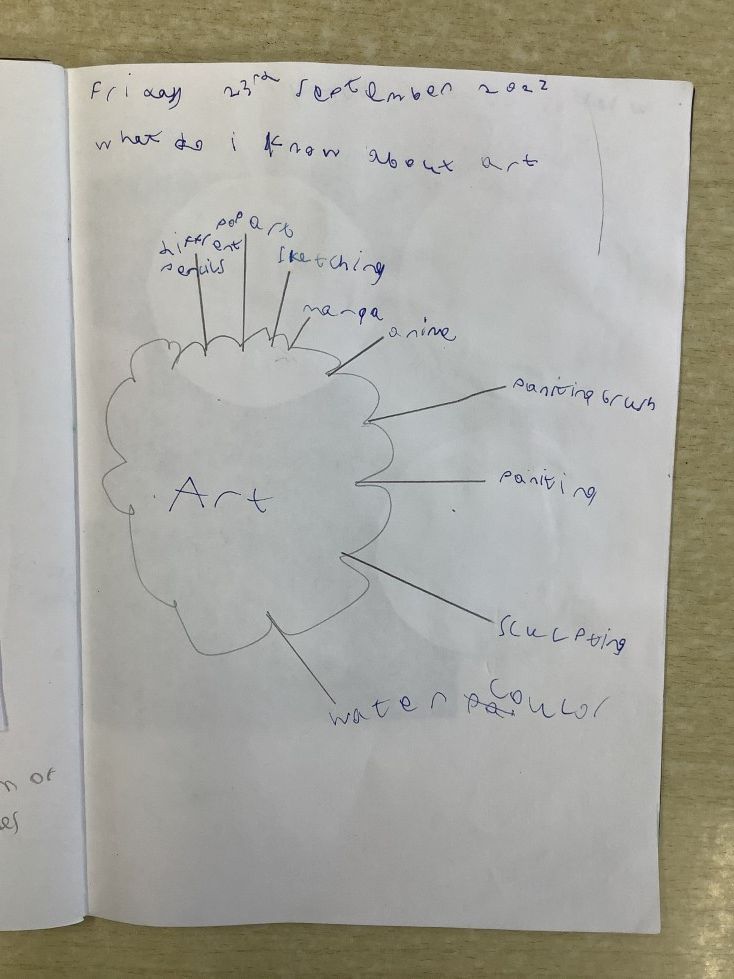 Friday 23rd September 2022
what do i know about art
pop art
diffrent
pencils
sketching
manga
anime
paniting brush
paniting
Art
sculpting
water coulor
n of
es